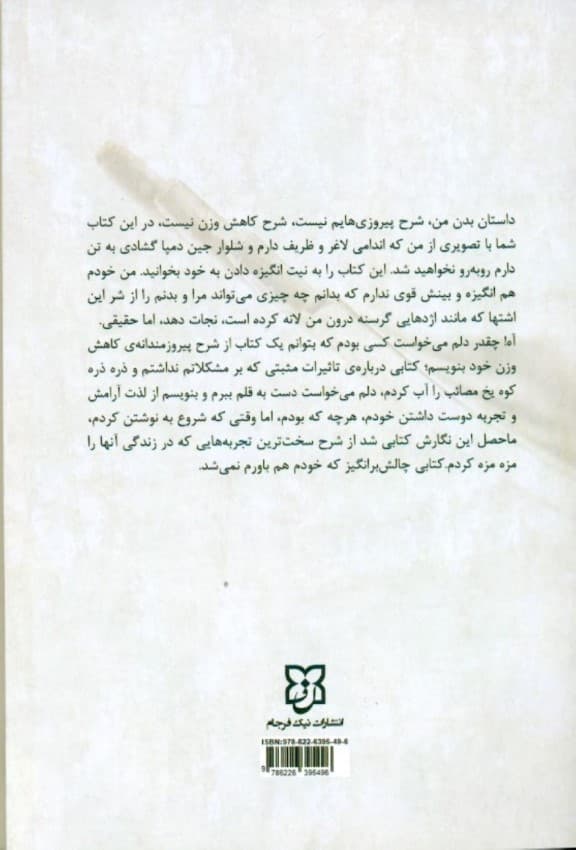 داستان بدن من، شرح پیروزی‌هایم نیست، شرح کاهش وزن نیست، در این کتاب
شما با تصویری از من که اندامی لاغر و ظریف دارم و شلوار جین دمپا گشادی به تن
دارم روبه‌رو نخواهید شد. این کتاب را به نیت انگیزه دادن به خود بخوانید. من خودم
هم انگیزه و بینش قوی ندارم که بدانم چه چیزی می‌تواند مرا و بدنم را از شر این
اشتها که مانند اژدهایی گرسنه درون من لانه کرده است، نجات دهد، اما حقیقی.
آه! چقدر دلم می‌خواست کسی بودم که بتوانم یک کتاب از شرح پیروزمندانه‌ی کاهش
وزن خود بنویسم؛ کتابی درباره‌ی تاثیرات مثبتی که بر مشکلاتم نداشتم و ذره ذره
کوه یخ مصائب را آب کردم، دلم می‌خواست دست به قلم ببرم و بنویسم از لذت آرامش
و تجربه دوست داشتن خودم، هرچه که بودم، اما وقتی که شروع به نوشتن کردم،
ماحصل این نگارش کتابی شد از شرح سخت‌ترین تجربه‌هایی که در زندگی آنها را
مزه مزه کردم.کتابی چالش‌برانگیز که خودم هم باورم نمی‌شد.
انتشارات نیک فرجام
ISBN:978-622-6395-49-6
9 786226 395496